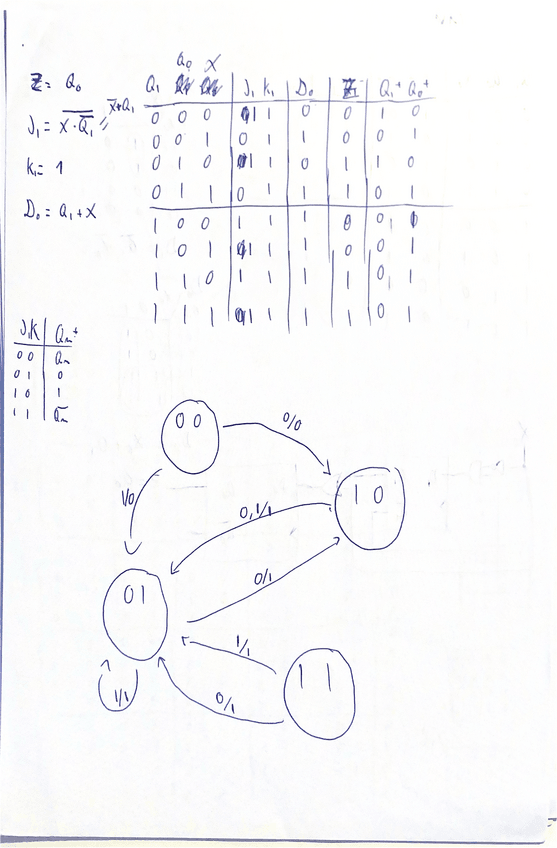 Z = Q₀
J₁ = \overline{X · \overline{Q₁}} // \overline{X} + Q₁
K₁ = 1
D₀ = Q₁ + X
Q₁ Q₀ X | J₁ K₁ | D₀ | Z | Q₁⁺ Q₀⁺
0 0 0 | 1 1 | 0 | 0 | 1 0
0 0 1 | 0 1 | 1 | 0 | 0 1
0 1 0 | 1 1 | 0 | 1 | 1 0
0 1 1 | 0 1 | 1 | 1 | 0 1
1 0 0 | 1 1 | 1 | 0 | 0 1
1 0 1 | 1 1 | 1 | 0 | 0 1
1 1 0 | 1 1 | 1 | 1 | 0 1
1 1 1 | 1 1 | 1 | 1 | 0 1
J K | Qₙ⁺
0 0 | Qₙ
0 1 | 0
1 0 | 1
1 1 | \overline{Qₙ}
0 0
0/0
1/0
1 0
0,1/1
0/1
0 1
1/1
1/1
1 1
0/1